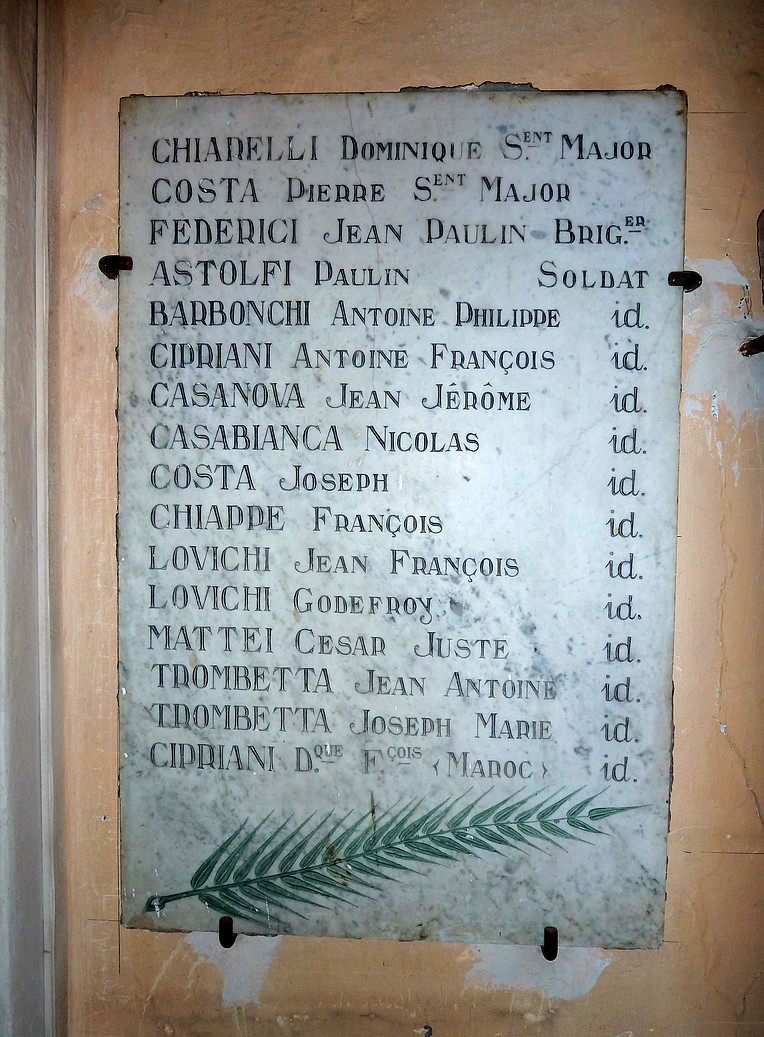 CHIARELLI DOMINIQUE S.ENT MAJOR
COSTA PIERRE S.ENT MAJOR
FEDERICI JEAN PAULIN BRIG.ER
ASTOLFI PAULIN SOLDAT
BARBONCHI ANTOINE PHILIPPE id.
CIPRIANI ANTOINE FRANÇOIS id.
CASANOVA JEAN JÉRÔME id.
CASABIANCA NICOLAS id.
COSTA JOSEPH id.
CHIAPPE FRANÇOIS id.
LOVICHI JEAN FRANÇOIS id.
LOVICHI GODEFROY id.
MATTEI CESAR JUSTE id.
TROMBETTA JEAN ANTOINE id.
TROMBETTA JOSEPH MARIE id.
CIPRIANI D.QUE F.ÇOIS (MAROC) id.